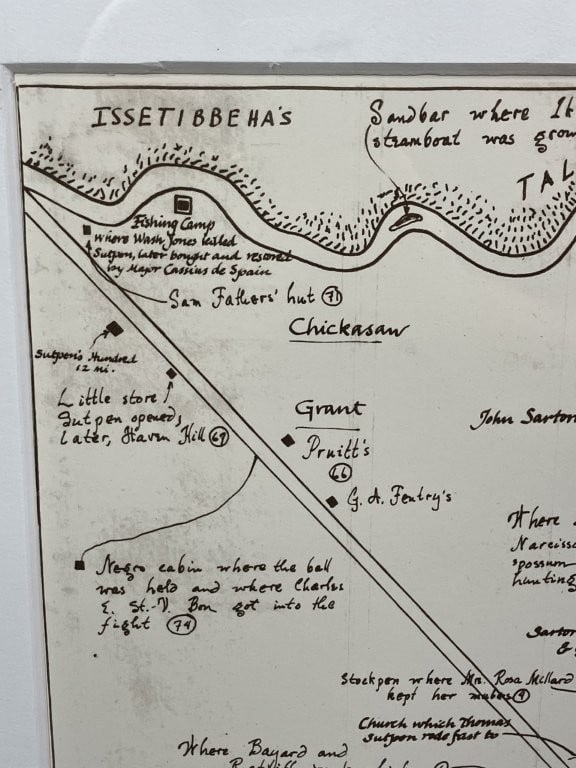 ISSETIBBEHA'S
Sandbar where
steamboat was
TAL
Fishing Camp
where Wash Jones killed
Sutpen, later bought and restored
by Major Cassius de Spain
Sam Fathers' hut 71
Chickasaw
Sutpen's Hundred
12 mi.
Little store
Sutpen opened,
later, Haven Hill 69
Grant
Pruitt's
66
G. A. Fentry's
John Sartor
Where
Narciss
'possum
hunting
Negro cabin where the ball
was held and where Charles
E. St.-V. Bon got into the
fight 74
Sartor
&
Stockpen where Mrs. Rosa Millard
kept her mules 9
Church which Thomas
Sutpen rode fast to
Where Bayard and